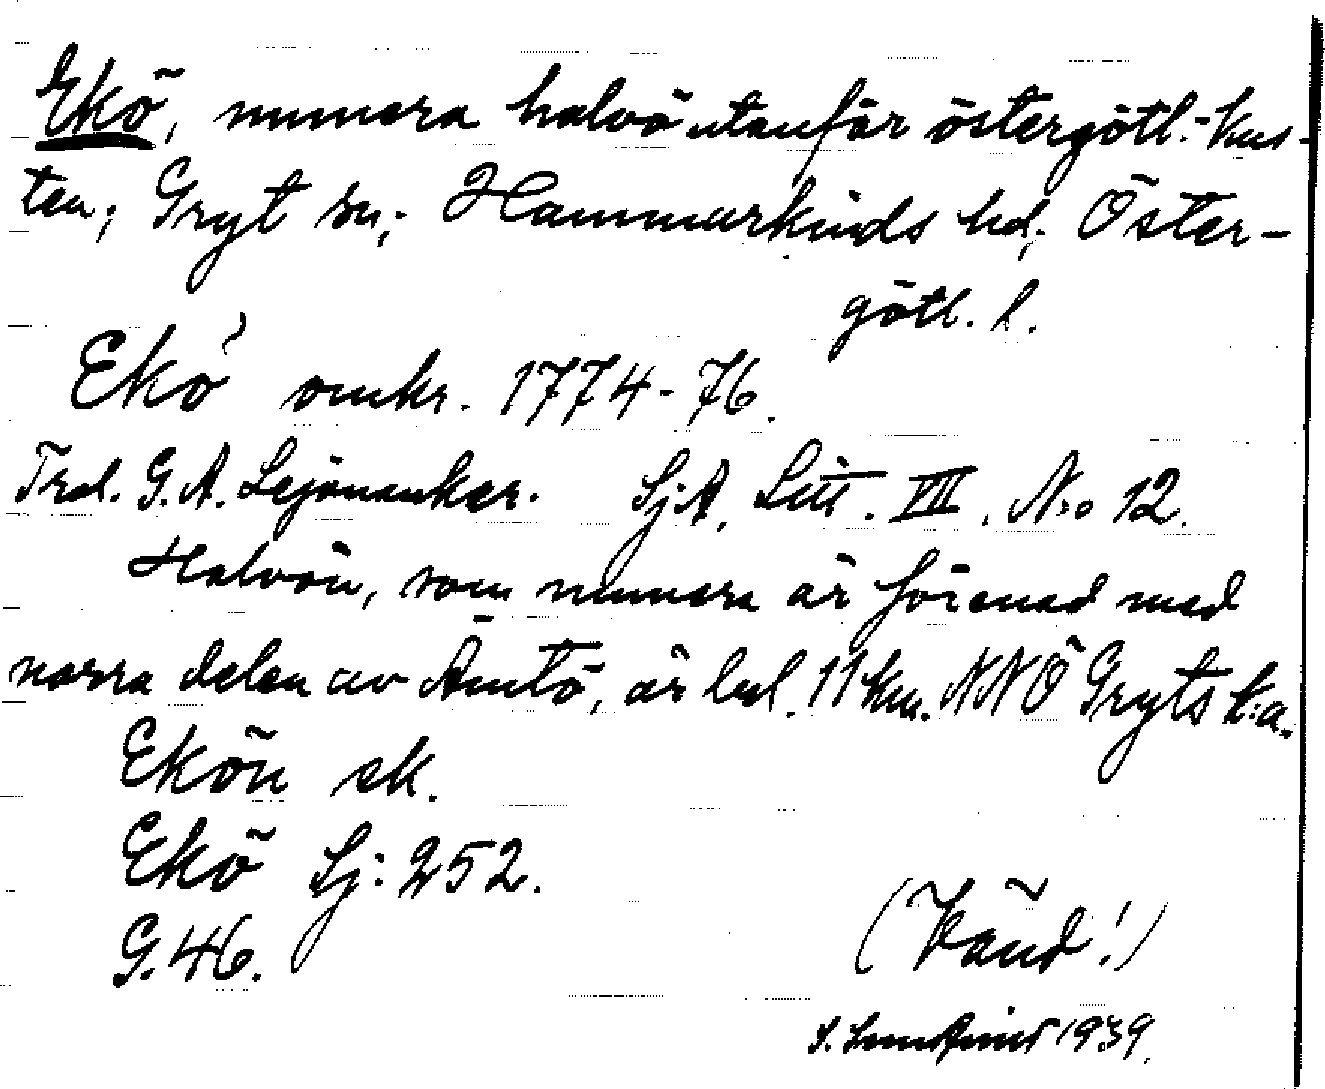 Ekö, numera halvö utanför östergötl.-kus-
ten; Gryt sn; Hammarkinds hd; Öster-
götl. l.
Ekö omkr. 1774-76.
Trol. G. A. Lejonanker. Sj.A. Litt. VII. N:o 12.
Halvön, som numera är förenad med
norra delen av Ämtö, är bel. 11 km. NNÖ Gryts k:a.
Ekön ek.
Ekö Sj: 252.
G. 46.
(Vänd!)
S. 1939.